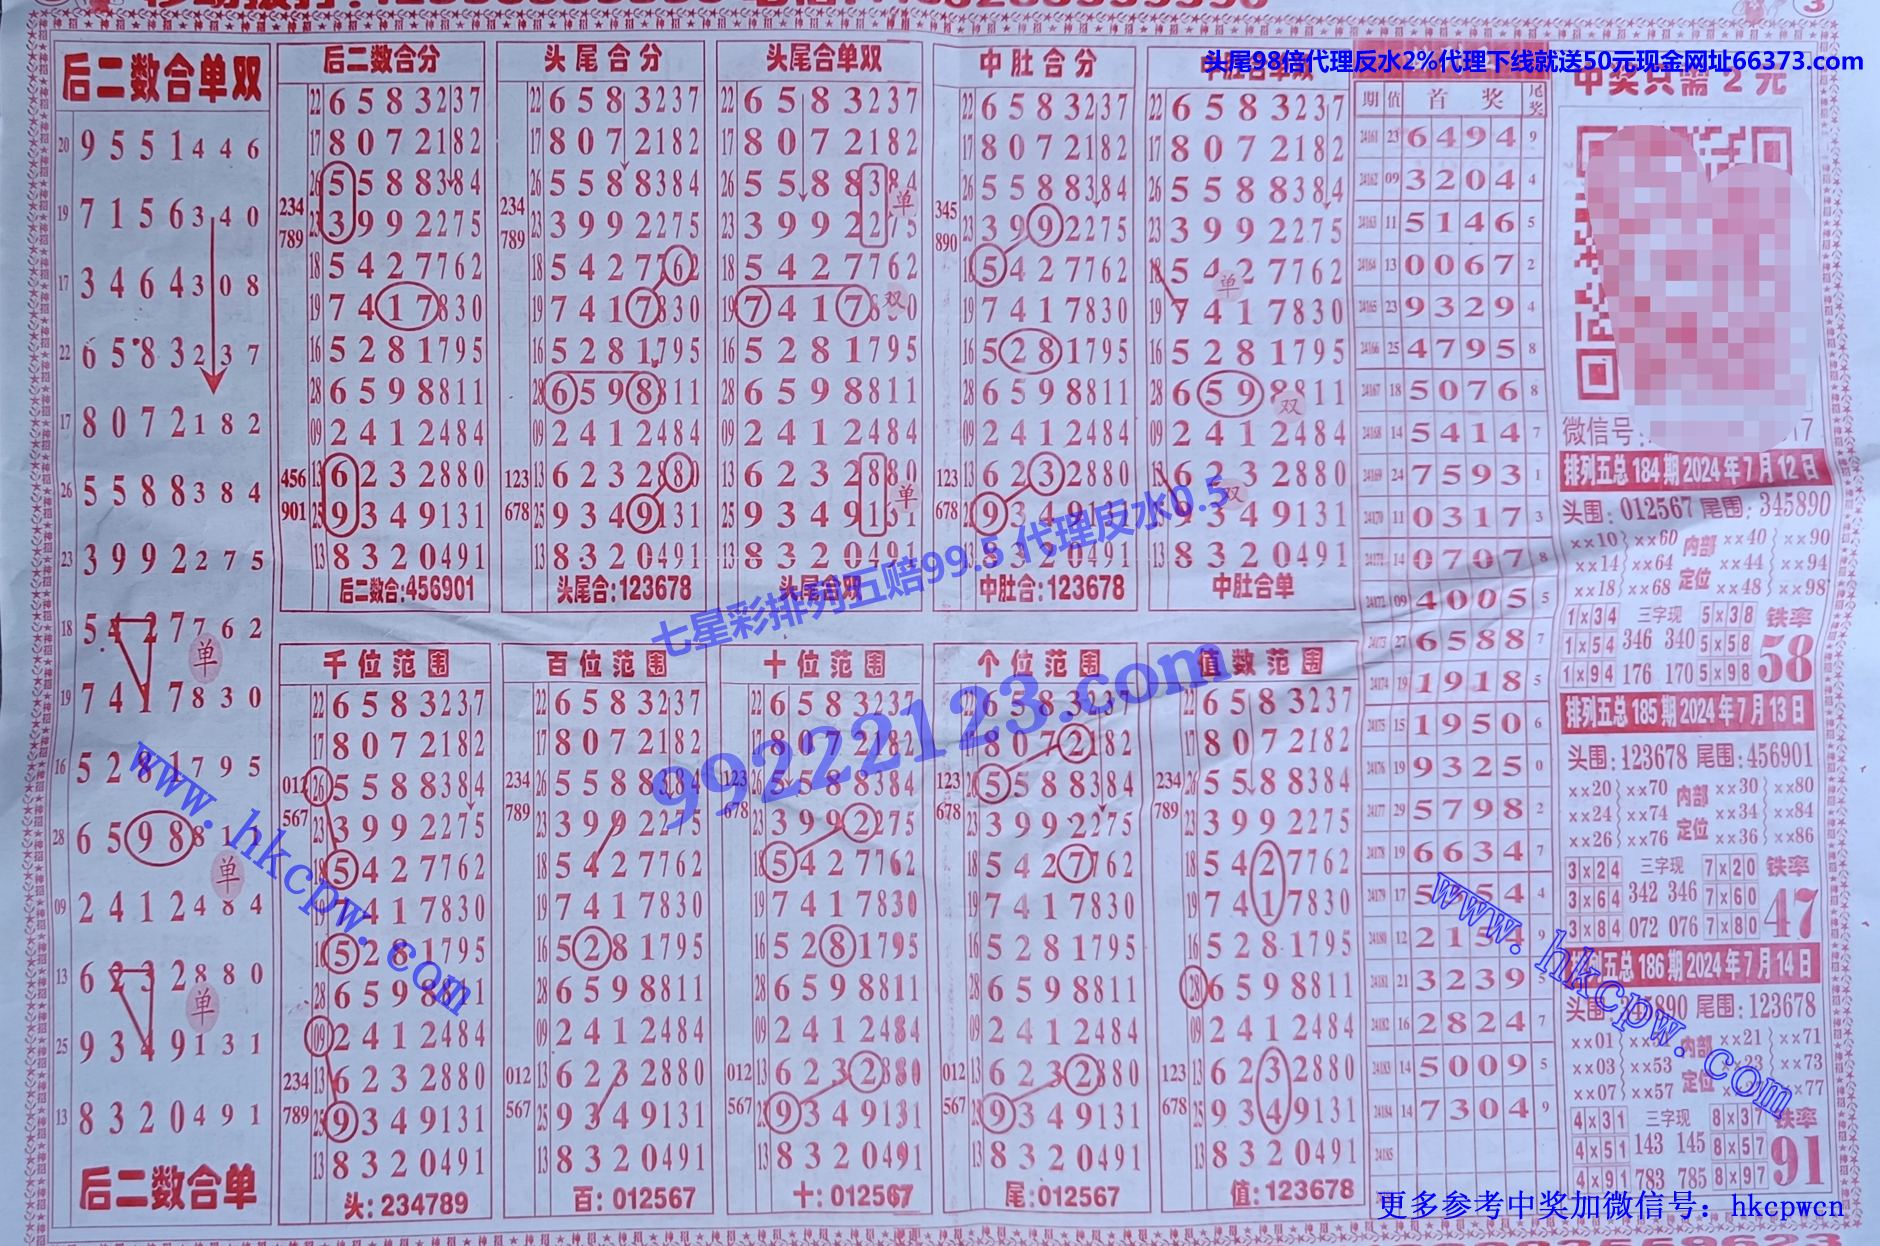 头尾98倍代理反水2%代理下线就送50元现金网址66373.com
中奖只需2元
后二数合单双
20 9551446
19 7156340
17 3464308
22 6583237
17 8072182
26 5588384
23 3992275
18 5427762
单
19 7417830
16 5281795
28 6598811
单
09 2412484
13 6232880
单
25 9349131
13 8320491
后二数合单
后二数合分
22 6583237
17 8072182
26 5588384
234
789
23 3992275
18 5427762
19 7417830
16 5281795
28 6598811
09 2412484
456
901
13 6232880
25 9349131
13 8320491
后二数合:456901
头尾合分
22 6583237
17 8072182
26 5588384
234
789
23 3992275
18 5427762
19 7417830
16 5281795
28 6598811
09 2412484
123
678
13 6232880
25 9349131
13 8320491
头尾合:123678
头尾合单双
22 6583237
17 8072182
26 5588384
单
23 3992275
18 5427762
19 7417830
双
16 5281795
28 6598811
09 2412484
13 6232880
单
25 9349131
13 8320491
头尾合双
中肚合分
22 6583237
17 8072182
26 5588384
345
890
23 3992275
18 5427762
19 7417830
16 5281795
28 6598811
09 2412484
123
678
13 6232880
25 9349131
13 8320491
中肚合:123678
中肚合单双
22 6583237
17 8072182
26 5588384
23 3992275
18 5427762
单
19 7417830
16 5281795
28 6598811
双
09 2412484
13 6232880
双
25 9349131
13 8320491
中肚合单
千位范围
22 6583237
17 8072182
26 5588384
012
567
23 3992275
18 5427762
19 7417830
16 5281795
28 6598811
09 2412484
234
789
13 6232880
25 9349131
13 8320491
头:234789
百位范围
22 6583237
17 8072182
26 5588384
234
789
23 3992275
18 5427762
19 7417830
16 5281795
28 6598811
09 2412484
012
567
13 6232880
25 9349131
13 8320491
百:012567
十位范围
22 6583237
17 8072182
26 5588384
123
678
23 3992275
18 5427762
19 7417830
16 5281795
28 6598811
09 2412484
012
567
13 6232880
25 9349131
13 8320491
十:012567
个位范围
22 6583237
17 8072182
26 5588384
123
678
23 3992275
18 5427762
19 7417830
16 5281795
28 6598811
09 2412484
012
567
13 6232880
25 9349131
13 8320491
尾:012567
值数范围
22 6583237
17 8072182
26 5588384
234
789
23 3992275
18 5427762
19 7417830
16 5281795
28 6598811
09 2412484
123
678
13 6232880
25 9349131
13 8320491
值:123678
期 值 首奖 尾奖
24161 23 6494 9
24162 09 3204 4
24163 11 5146 5
24164 13 0067 2
24165 23 9329 4
24166 25 4795 8
24167 18 5076 8
24168 14 5414 7
24169 24 7593 1
24170 11 0317 3
24171 14 0707 8
24172 09 4005 5
24173 27 6588 7
24174 19 1918 5
24175 15 1950 6
24176 19 9325 0
24177 29 5798 2
24178 19 6634 7
24179 17 5 54 4
24180 12 21 9
24181 21 3239
24182 16 2824 7
24183 14 5009 5
24184 14 7304 9
24185
微信号:
排列五总184期2024年7月12日
头围:012567 尾围:345890
××10 ××60 内部 ××40 ××90
××14 ××64 ××44 ××94
××18 ××68 定位 ××48 ××98
1×34 三字现 5×38 铁率
1×54 346 340 5×58 58
1×94 176 170 5×98
排列五总185期2024年7月13日
头围:123678 尾围:456901
××20 ××70 内部 ××30 ××80
××24 ××74 ××34 ××84
××26 ××76 定位 ××36 ××86
3×24 三字现 7×20 铁率
3×64 342 346 7×60 47
3×84 072 076 7×80
排列五总186期2024年7月14日
头围: 890 尾围:123678
××01 内部 ××21 ××71
××03 ××53 ××23 ××73
××07 ××57 定位 ××77
4×31 三字现 8×37 铁率
4×51 143 145 8×57 91
4×91 783 785 8×97
七星彩排列五赔99.5 代理反水0.5
99222123.com
www.hkcpw.com
www.hkcpw.com
更多参考中奖加微信号：hkcpwcn